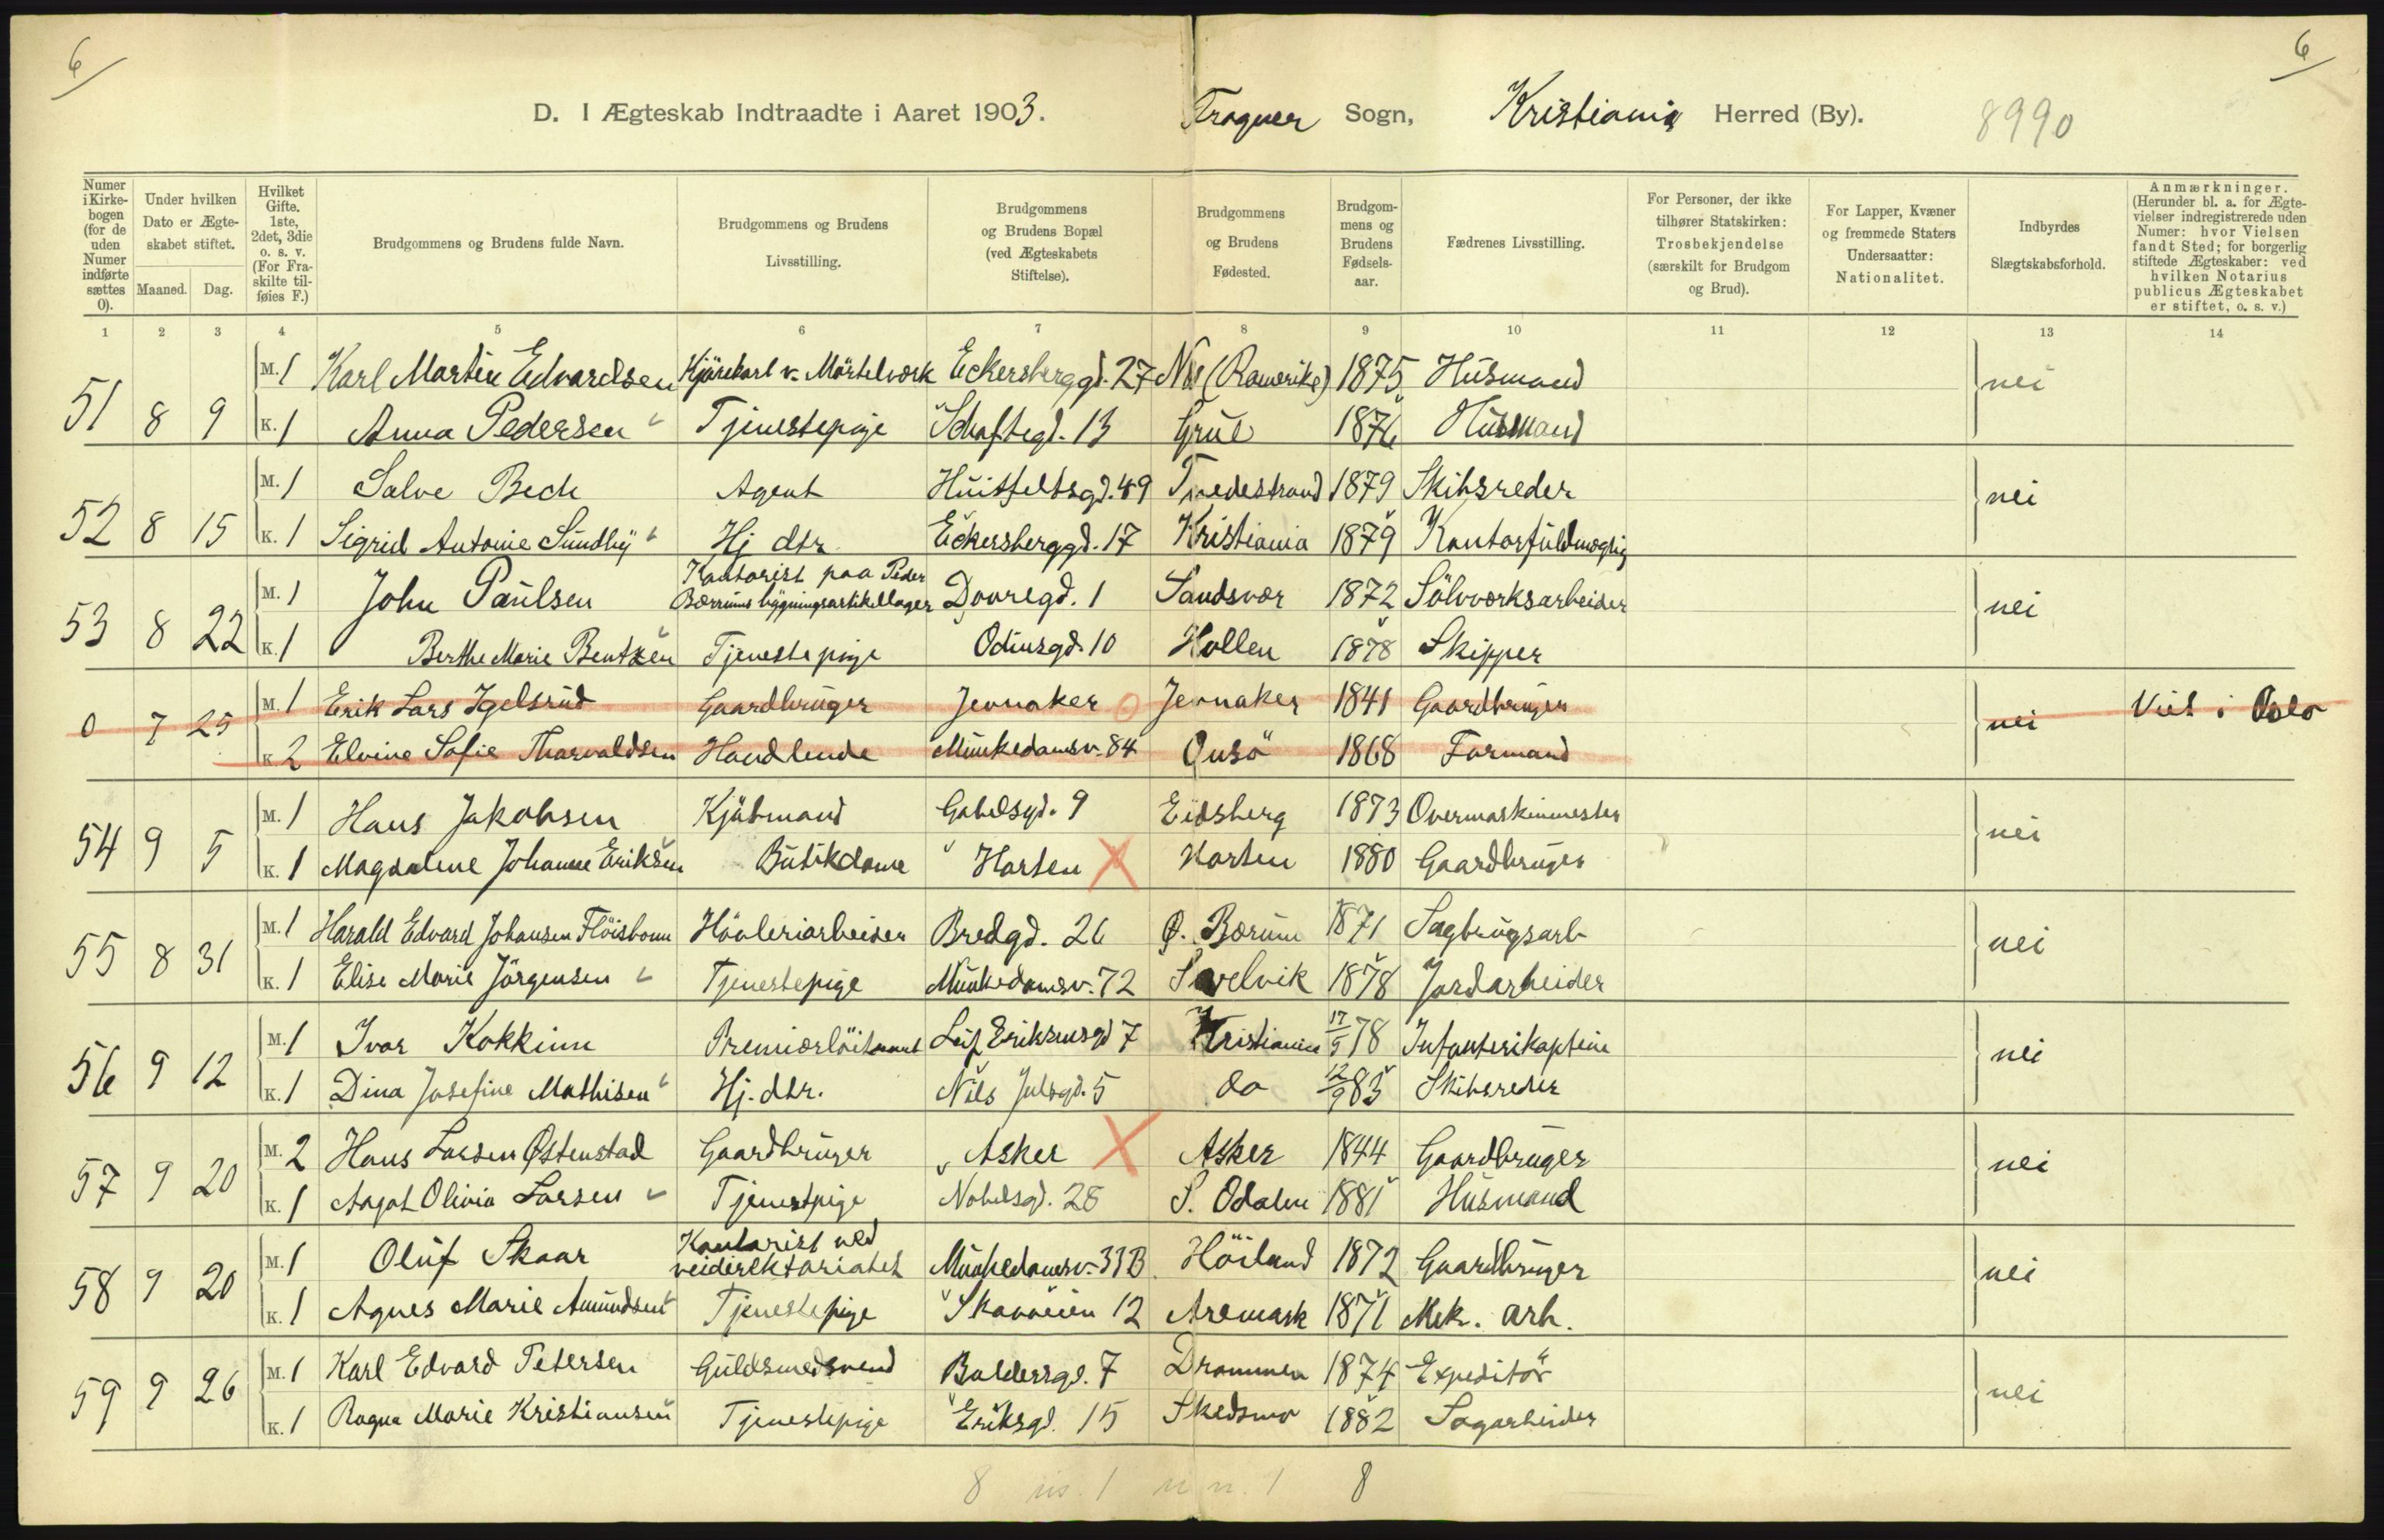 6
6
D. I Ægteskab Indtraadte i Aaret 1903. Frogner Sogn, Kristiania Herred (By). 8990
Numer i Kirkebogen (for de uden Numer indførte sættes 0).
Under hvilken Dato er Ægteskabet stiftet.
Maaned. Dag.
Hvilket Gifte. 1ste, 2det, 3die o. s. v. (For Fraskilte tilføies F.)
Brudgommens og Brudens fulde Navn.
Brudgommens og Brudens Livsstilling.
Brudgommens og Brudens Bopæl (ved Ægteskabets Stiftelse).
Brudgommens og Brudens Fødested.
Brudgommens og Brudens Fødselsaar.
Fædrenes Livsstilling.
For Personer, der ikke tilhører Statskirken: Trosbekjendelse (særskilt for Brudgom og Brud).
For Lapper, Kvæner og fremmede Staters Undersaatter: Nationalitet.
Indbyrdes Slægtskabsforhold.
Anmærkninger. (Herunder bl. a. for Ægtevielser indregistrerede uden Numer: hvor Vielsen fandt Sted; for borgerlig stiftede Ægteskaber: ved hvilken Notarius publicus Ægteskabet er stiftet, o. s. v.)
1 2 3 4 5 6 7 8 9 10 11 12 13 14
M. 1 Karl Martin Edvardsen Kjörekarl v. Mörtelværk Eckersberggd. 27 Næs (Romerike) 1875 Husmand
51 8 9 nei
K. 1 Anna Pedersen Tjenestepige Schaftegd. 13 Grue 1876 Husmand
M. 1 Salve Bech Agent Huitfeltsgd. 49 Tvedestrand 1879 Skibsreder
52 8 15 nei
K. 1 Sigrid Antonie Sundby Hj dtr Eckersberggd. 17 Kristiania 1879 Kontorfuldmægtig
M. 1 John Paulsen Kontorist paa Peder Bærrums bygningsartikellager Dovregd. 1 Sandsvær 1872 Sölvværksarbeider
53 8 22 nei
K. 1 Berthe Marie Bentzen Tjenestepige Odinsgd. 10 Hollen 1878 Skipper
M. 1 Erik Lars Igelsrud Gaardbruger Jevnaker Jevnaker 1841 Gaardbruger
0 7 25 nei Viet i Oslo
K. 2 Elvine Sofie Thorvaldsen Handlende Munkedamsv. 84 Onsö 1868 Formand
M. 1 Hans Jakobsen Kjöbmand Gabelsgd. 9 Eidsberg 1873 Overmaskinmester
54 9 5 nei
K. 1 Magdalene Johanne Eriksen Butikdame Horten Horten 1880 Gaardbruger
M. 1 Harald Edvard Johansen Flöisbonn Hövleriarbeider Bredgd. 26 Ø. Bærum 1871 Sagbrugsarb
55 8 31 nei
K. 1 Elise Marie Jörgensen Tjenestepige Munkedamsv. 72 Svelvik 1878 Jordarbeider
M. 1 Ivar Kokkinn Premierlöitnant Leif Eriksensgd 7 Kristiania 17/5 78 Infanterikaptein
56 9 12 nei
K. 1 Dina Josefine Mathisen Hj. dtr. Nils Julsgd. 5 do 12/9 83 Skibsreder
M. 2 Hans Larsen Østenstad Gaardbruger Asker Asker 1844 Gaardbruger
57 9 20 nei
K. 1 Aagot Olivia Larsen Tjenestpige Nobelsgd. 28 S. Odalen 1881 Husmand
M. 1 Oluf Skaar Kontorist ved veidirektoriatet Munkedamsv. 33B Höiland 1872 Gaardbruger
58 9 20 nei
K. 1 Agnes Marie Amundsen Tjenestepige Skovveien 12 Aremark 1871 Mek. arb.
M. 1 Karl Edvard Petersen Guldsmedsvend Baldersgd. 7 Drammen 1874 Expeditör
59 9 26 nei
K. 1 Ragna Marie Kristiansen Tjenestepige Eriksgd. 15 Skedsmo 1882 Sagarbeider
8